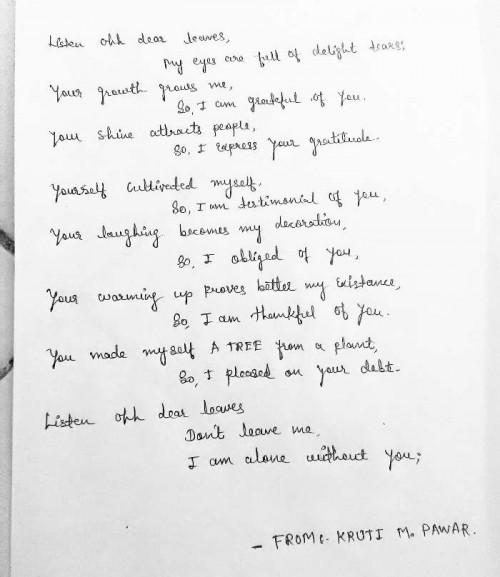 Listen ohh dear leaves,
My eyes are full of delight tears;
Your growth grows me,
So, I am grateful of you.
Your shine attracts people,
So, I express your gratitude.
Yourself cultivated myself,
So, I am testimonial of you,
Your laughing becomes my decoration,
So, I obliged of you,
Your warming up proves better my existance,
So, I am thankful of you.
You made myself A TREE from a plant,
So, I pleased on your debt.
Listen ohh dear leaves
Don't leave me,
I am alone without you;
- FROM:- KRUTI M. PAWAR.